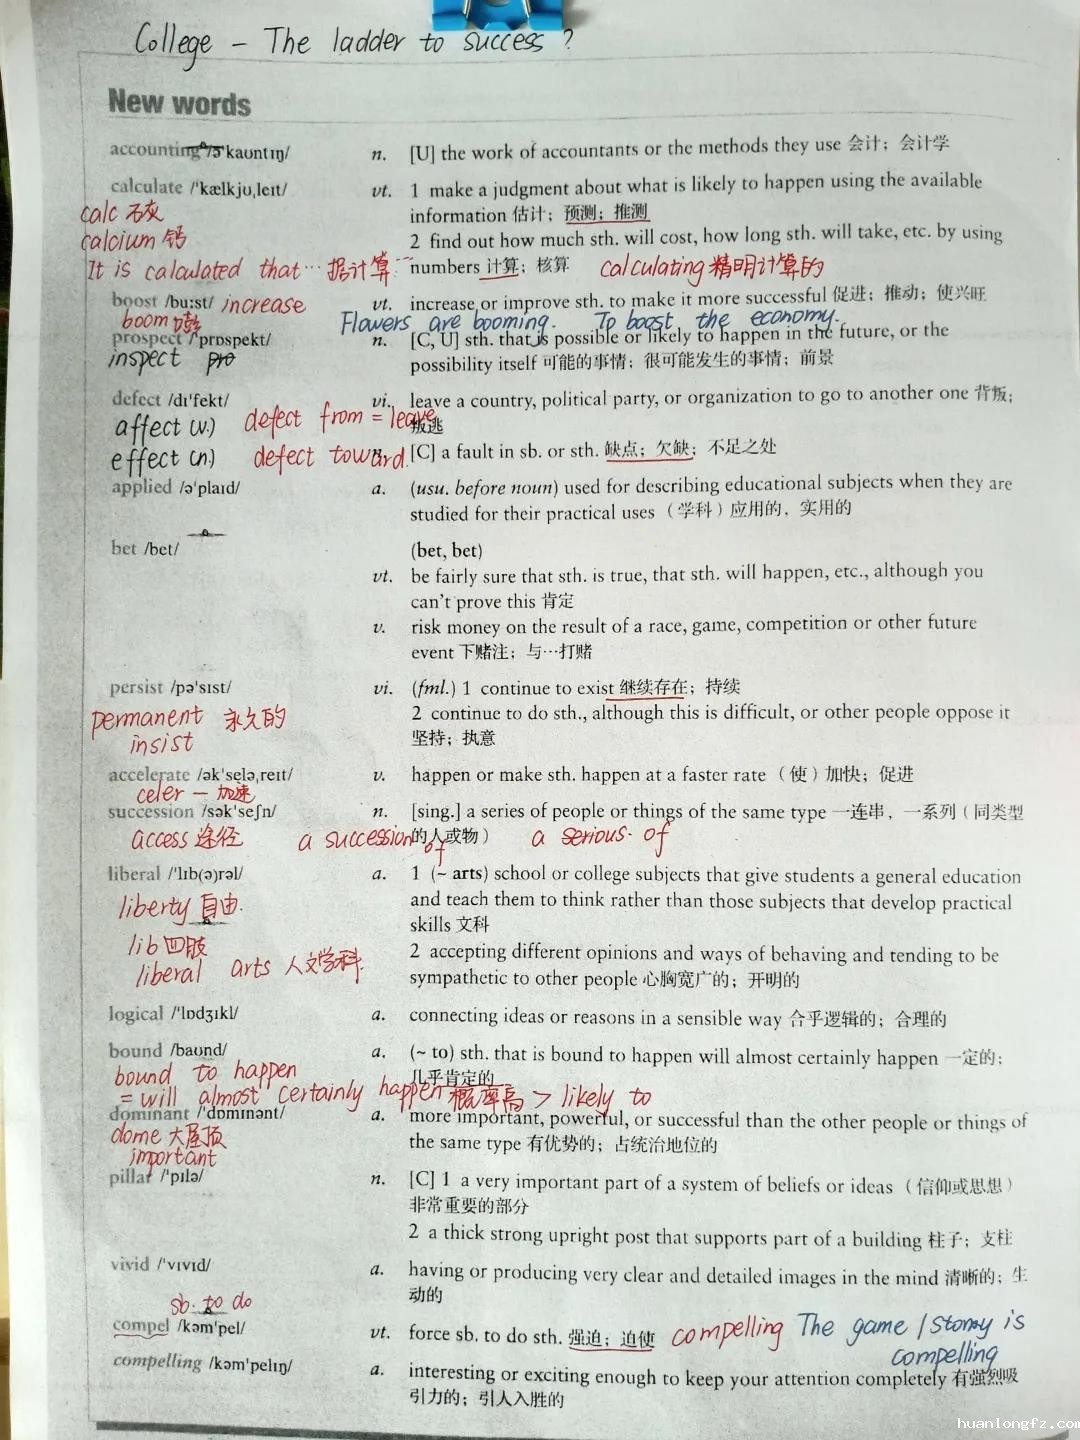 College - The ladder to success ?
New words
accounting /ə'kaʊntɪŋ/ n. [U] the work of accountants or the methods they use 会计；会计学
calculate /'kælkjʊˌleɪt/ vt. 1 make a judgment about what is likely to happen using the available
calc 石灰 information 估计；预测；推测
calcium 钙 2 find out how much sth. will cost, how long sth. will take, etc. by using
It is calculated that… 据计算… numbers 计算；核算 calculating 精明计算的
boost /buːst/ increase vt. increase or improve sth. to make it more successful 促进；推动；使兴旺
boom 嘭 Flowers are booming. To boost the economy.
prospect /'prɒspekt/ n. [C, U] sth. that is possible or likely to happen in the future, or the
inspect pro possibility itself 可能的事情；很可能发生的事情；前景
defect /dɪ'fekt/ vi. leave a country, political party, or organization to go to another one 背叛；
affect (v.) defect from = leave 叛逃
effect (n.) defect toward n. [C] a fault in sb. or sth. 缺点；欠缺；不足之处
applied /ə'plaɪd/ a. (usu. before noun) used for describing educational subjects when they are
studied for their practical uses（学科）应用的，实用的
bet /bet/ (bet, bet)
vt. be fairly sure that sth. is true, that sth. will happen, etc., although you
can't prove this 肯定
v. risk money on the result of a race, game, competition or other future
event 下赌注；与…打赌
persist /pə'sɪst/ vi. (fml.) 1 continue to exist 继续存在；持续
permanent 永久的 2 continue to do sth., although this is difficult, or other people oppose it
insist 坚持；执意
accelerate /ək'seləˌreɪt/ v. happen or make sth. happen at a faster rate （使）加快；促进
celer — 加速
succession /sək'seʃn/ n. [sing.] a series of people or things of the same type 一连串，一系列（同类型
access 途径 a succession of 的人或物） a serious of
liberal /'lɪb(ə)rəl/ a. 1 (~ arts) school or college subjects that give students a general education
liberty 自由. and teach them to think rather than those subjects that develop practical
skills 文科
lib 四肢 2 accepting different opinions and ways of behaving and tending to be
liberal arts 人文学科. sympathetic to other people 心胸宽广的；开明的
logical /'lɒdʒɪkl/ a. connecting ideas or reasons in a sensible way 合乎逻辑的；合理的
bound /baʊnd/ a. (~ to) sth. that is bound to happen will almost certainly happen 一定的；
bound to happen 几乎肯定的
= will almost certainly happen 概率高 > likely to
dominant /'dɒmɪnənt/ a. more important, powerful, or successful than the other people or things of
dome 大屋顶 the same type 有优势的；占统治地位的
important
pillar /'pɪlə/ n. [C] 1 a very important part of a system of beliefs or ideas （信仰或思想）
非常重要的部分
2 a thick strong upright post that supports part of a building 柱子；支柱
vivid /'vɪvɪd/ a. having or producing very clear and detailed images in the mind 清晰的；生
动的
sb. to do
compel /kəm'pel/ vt. force sb. to do sth. 强迫；迫使 compelling The game / Stomy is
compelling
compelling /kəm'pelɪŋ/ a. interesting or exciting enough to keep your attention completely 有强烈吸
引力的；引人入胜的
huanlongfz.com